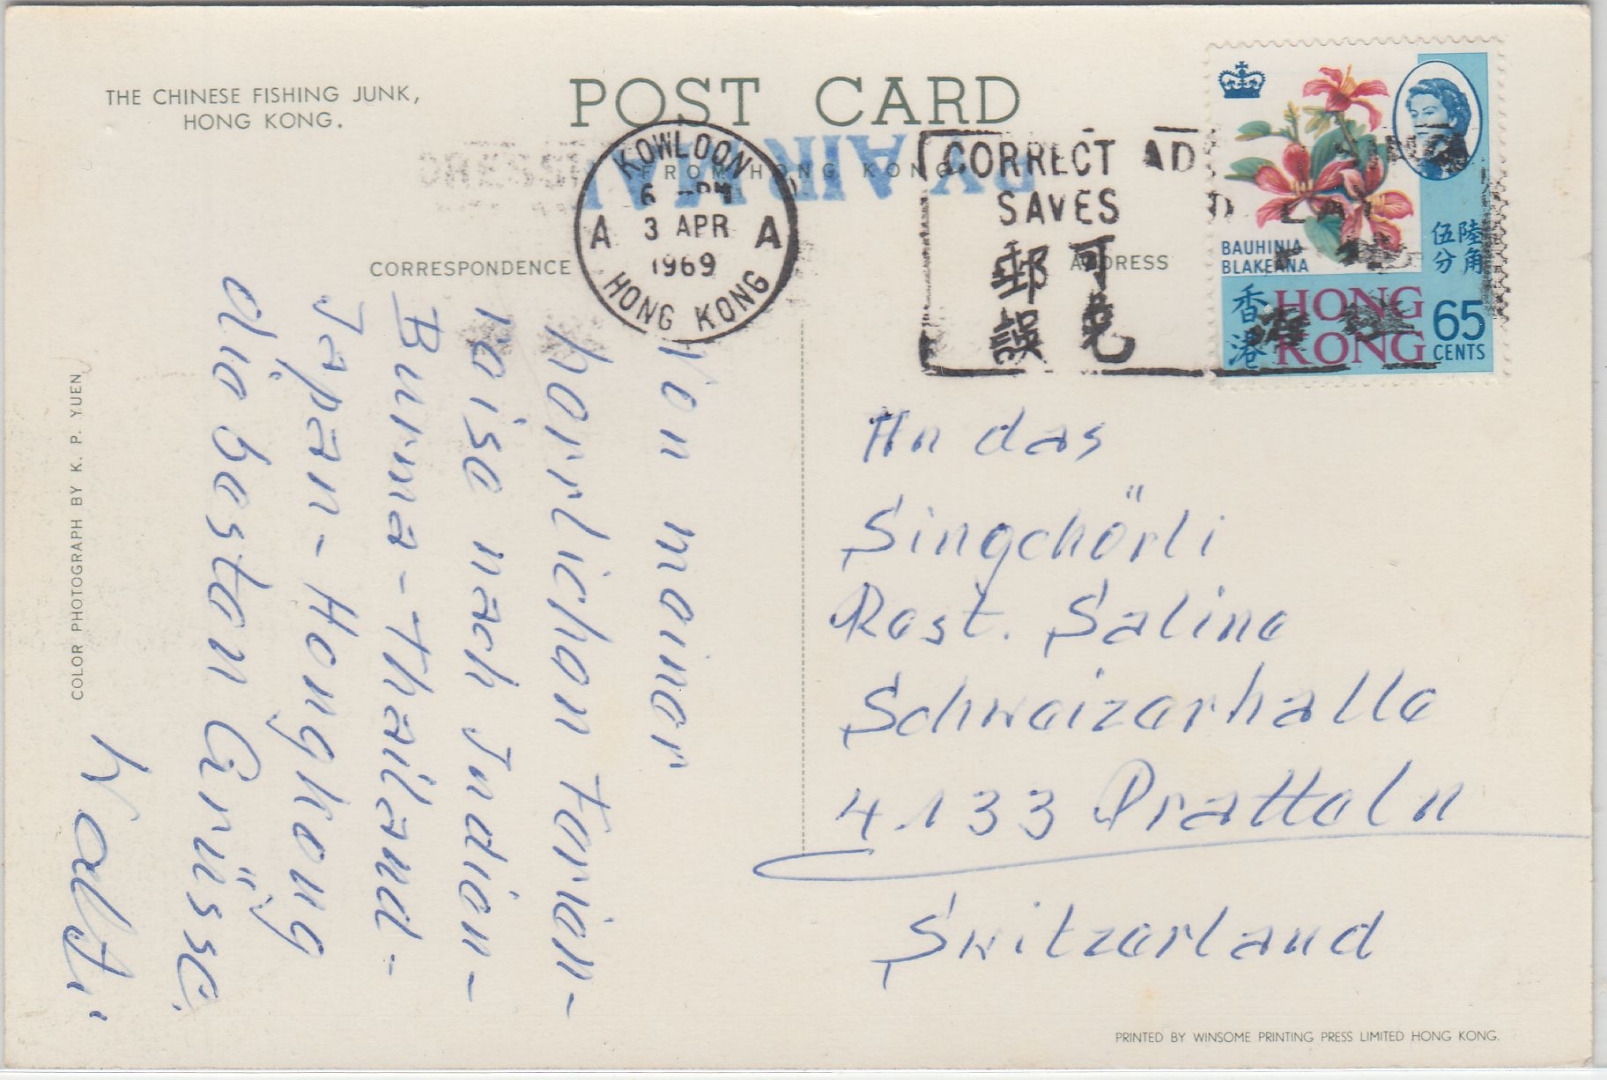 THE CHINESE FISHING JUNK,
HONG KONG.
POST CARD
BY AIR MAIL
FROM HONG KONG
KOWLOON
6 - PM
A 3 APR A
1969
HONG KONG
CORRECT AD
SAVES
郵可
誤免
BAUHINIA
BLAKEANA
陸角
伍分
香港
HONG
KONG
65
CENTS
CORRESPONDENCE
ADDRESS
Von meiner
herrlichen Ferien-
reise nach Indien-
Burma-Thailand-
Japan-Hongkong
die besten Grüsse.
Walti
An das
Singchörli
Rest. Saline
Schweizerhalle
4133 Pratteln
Switzerland
COLOR PHOTOGRAPH BY K. P. YUEN
PRINTED BY WINSOME PRINTING PRESS LIMITED HONG KONG.